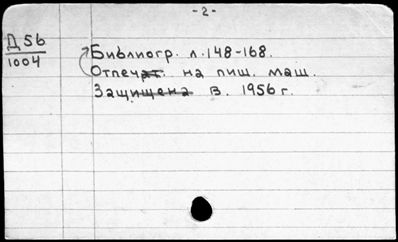 - 2 -
Д 56
1004
Библиогр. л. 148-168.
Отпечат. на пиш. маш.
Защищена в. 1956 г.